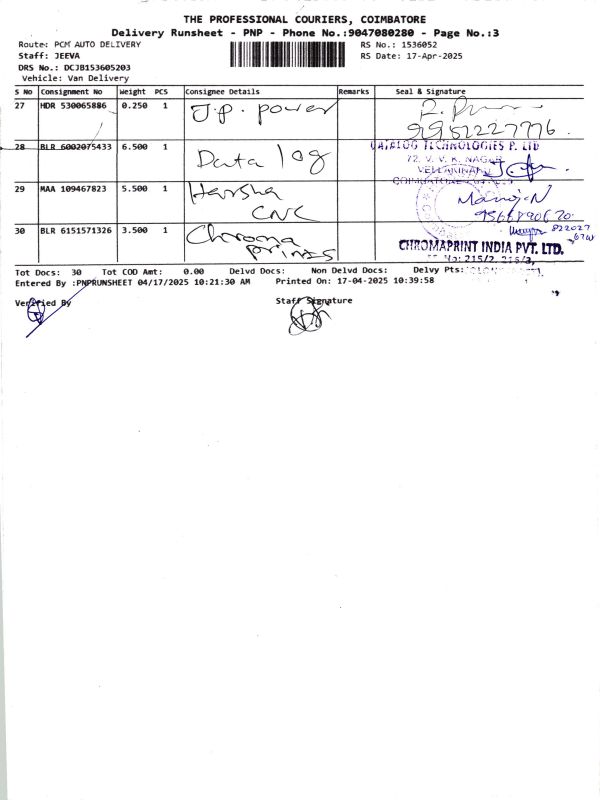 THE PROFESSIONAL COURIERS, COIMBATORE
Delivery Runsheet - PNP - Phone No.:9047080280 - Page No.:3
Route: PCM AUTO DELIVERY
RS No.: 1536052
Staff: JEEVA
RS Date: 17-Apr-2025
DRS No.: DCJB153605203
Vehicle: Van Delivery
S No Consignment No Weight PCS Consignee Details Remarks Seal & Signature
27 HDR 530065886 0.250 1 J.p. power
9951227776
28 BLR 6002075433 6.500 1 Data log DATALOG TECHNOLOGIES P. LTD
72, V. V. K. NAGAR
29 MAA 109467823 5.500 1 Harsha Manoj.N
CNC
30 BLR 6151571326 3.500 1 Chroma
prints
CHROMAPRINT INDIA PVT. LTD.
Tot Docs: 30 Tot COD Amt: 0.00 Delvd Docs: Non Delvd Docs: Delvy Pts:
Entered By :PNPRUNSHEET 04/17/2025 10:21:30 AM Printed On: 17-04-2025 10:39:58
Verified By Staff Signature